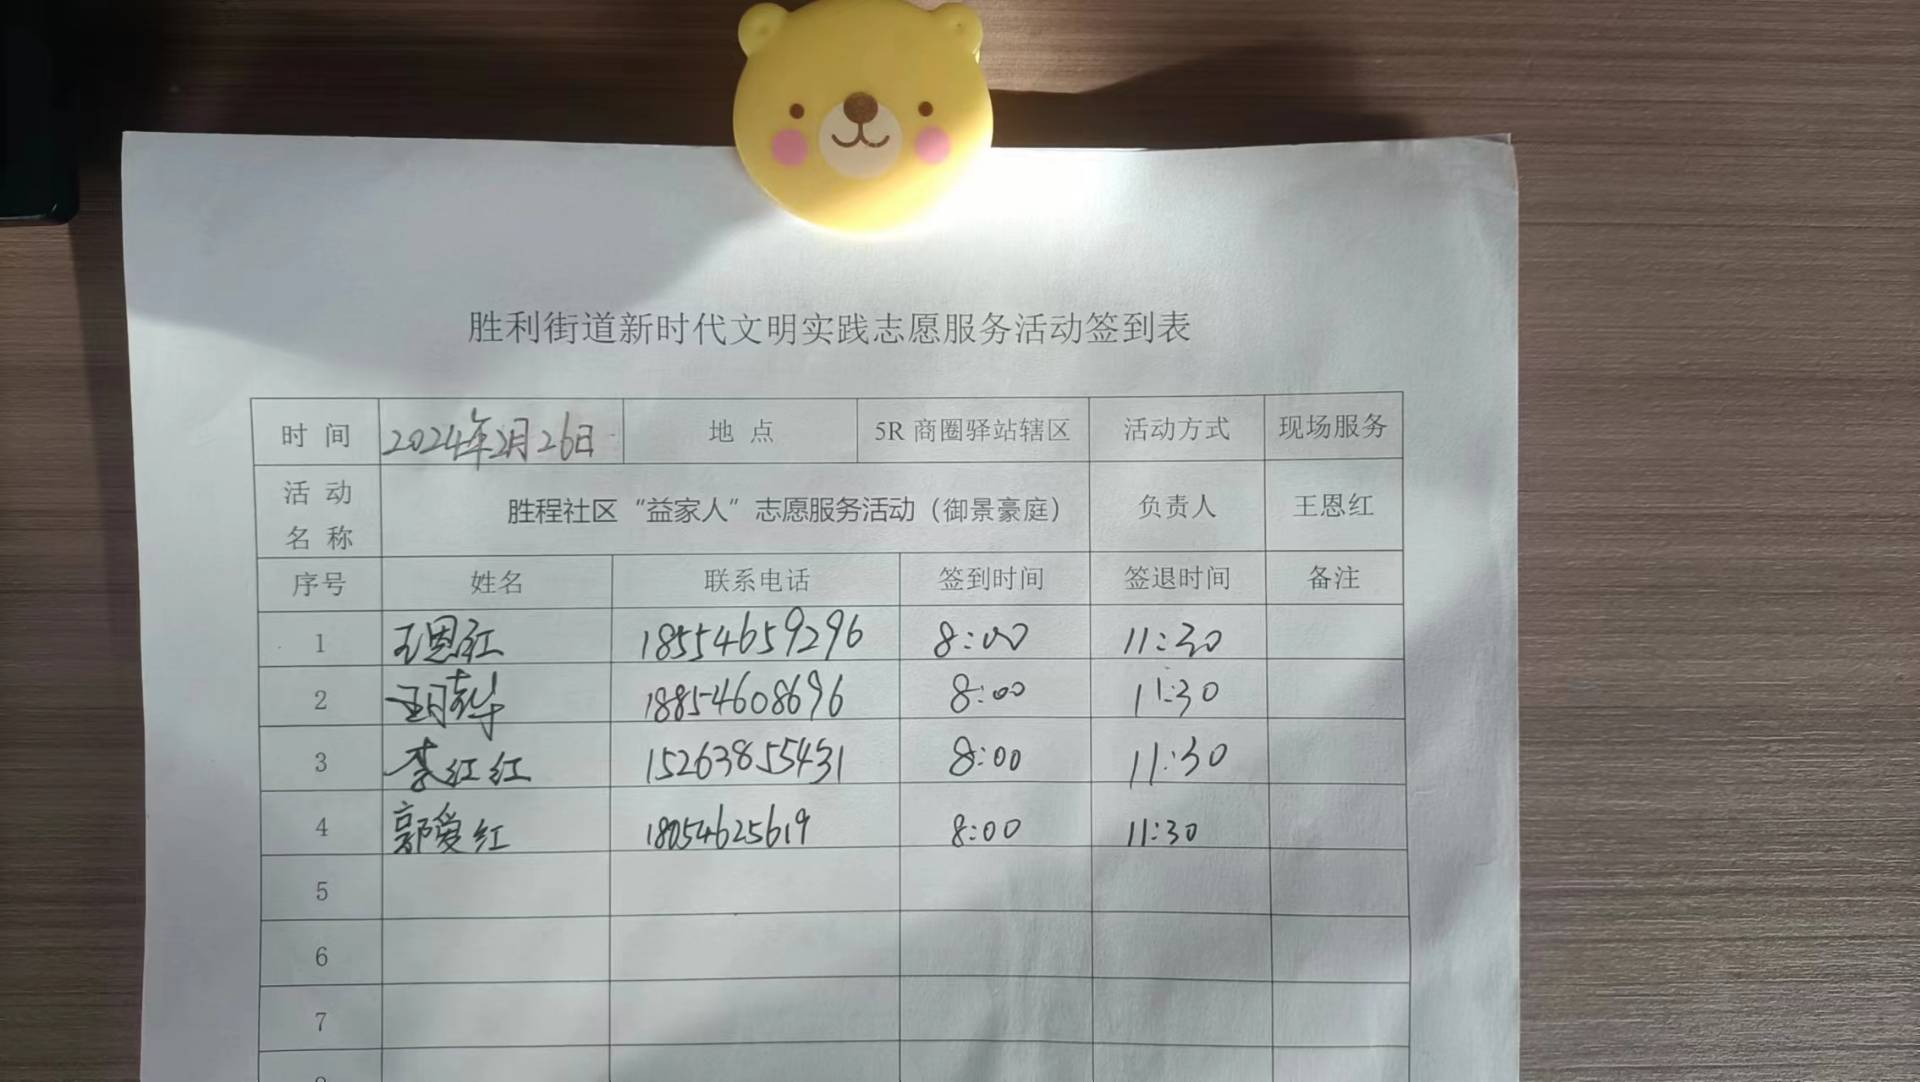 胜利街道新时代文明实践志愿服务活动签到表
时 间 2024年2月26日 地 点 5R 商圈驿站辖区 活动方式 现场服务
活 动 名 称 胜程社区“益家人”志愿服务活动（御景豪庭） 负责人 王恩红
序号 姓名 联系电话 签到时间 签退时间 备注
1 王恩红 18554659296 8:00 11:30
2 18854608696 8:00 11:30
3 李红红 15263855431 8:00 11:30
4 郭爱红 18054625619 8:00 11:30
5
6
7